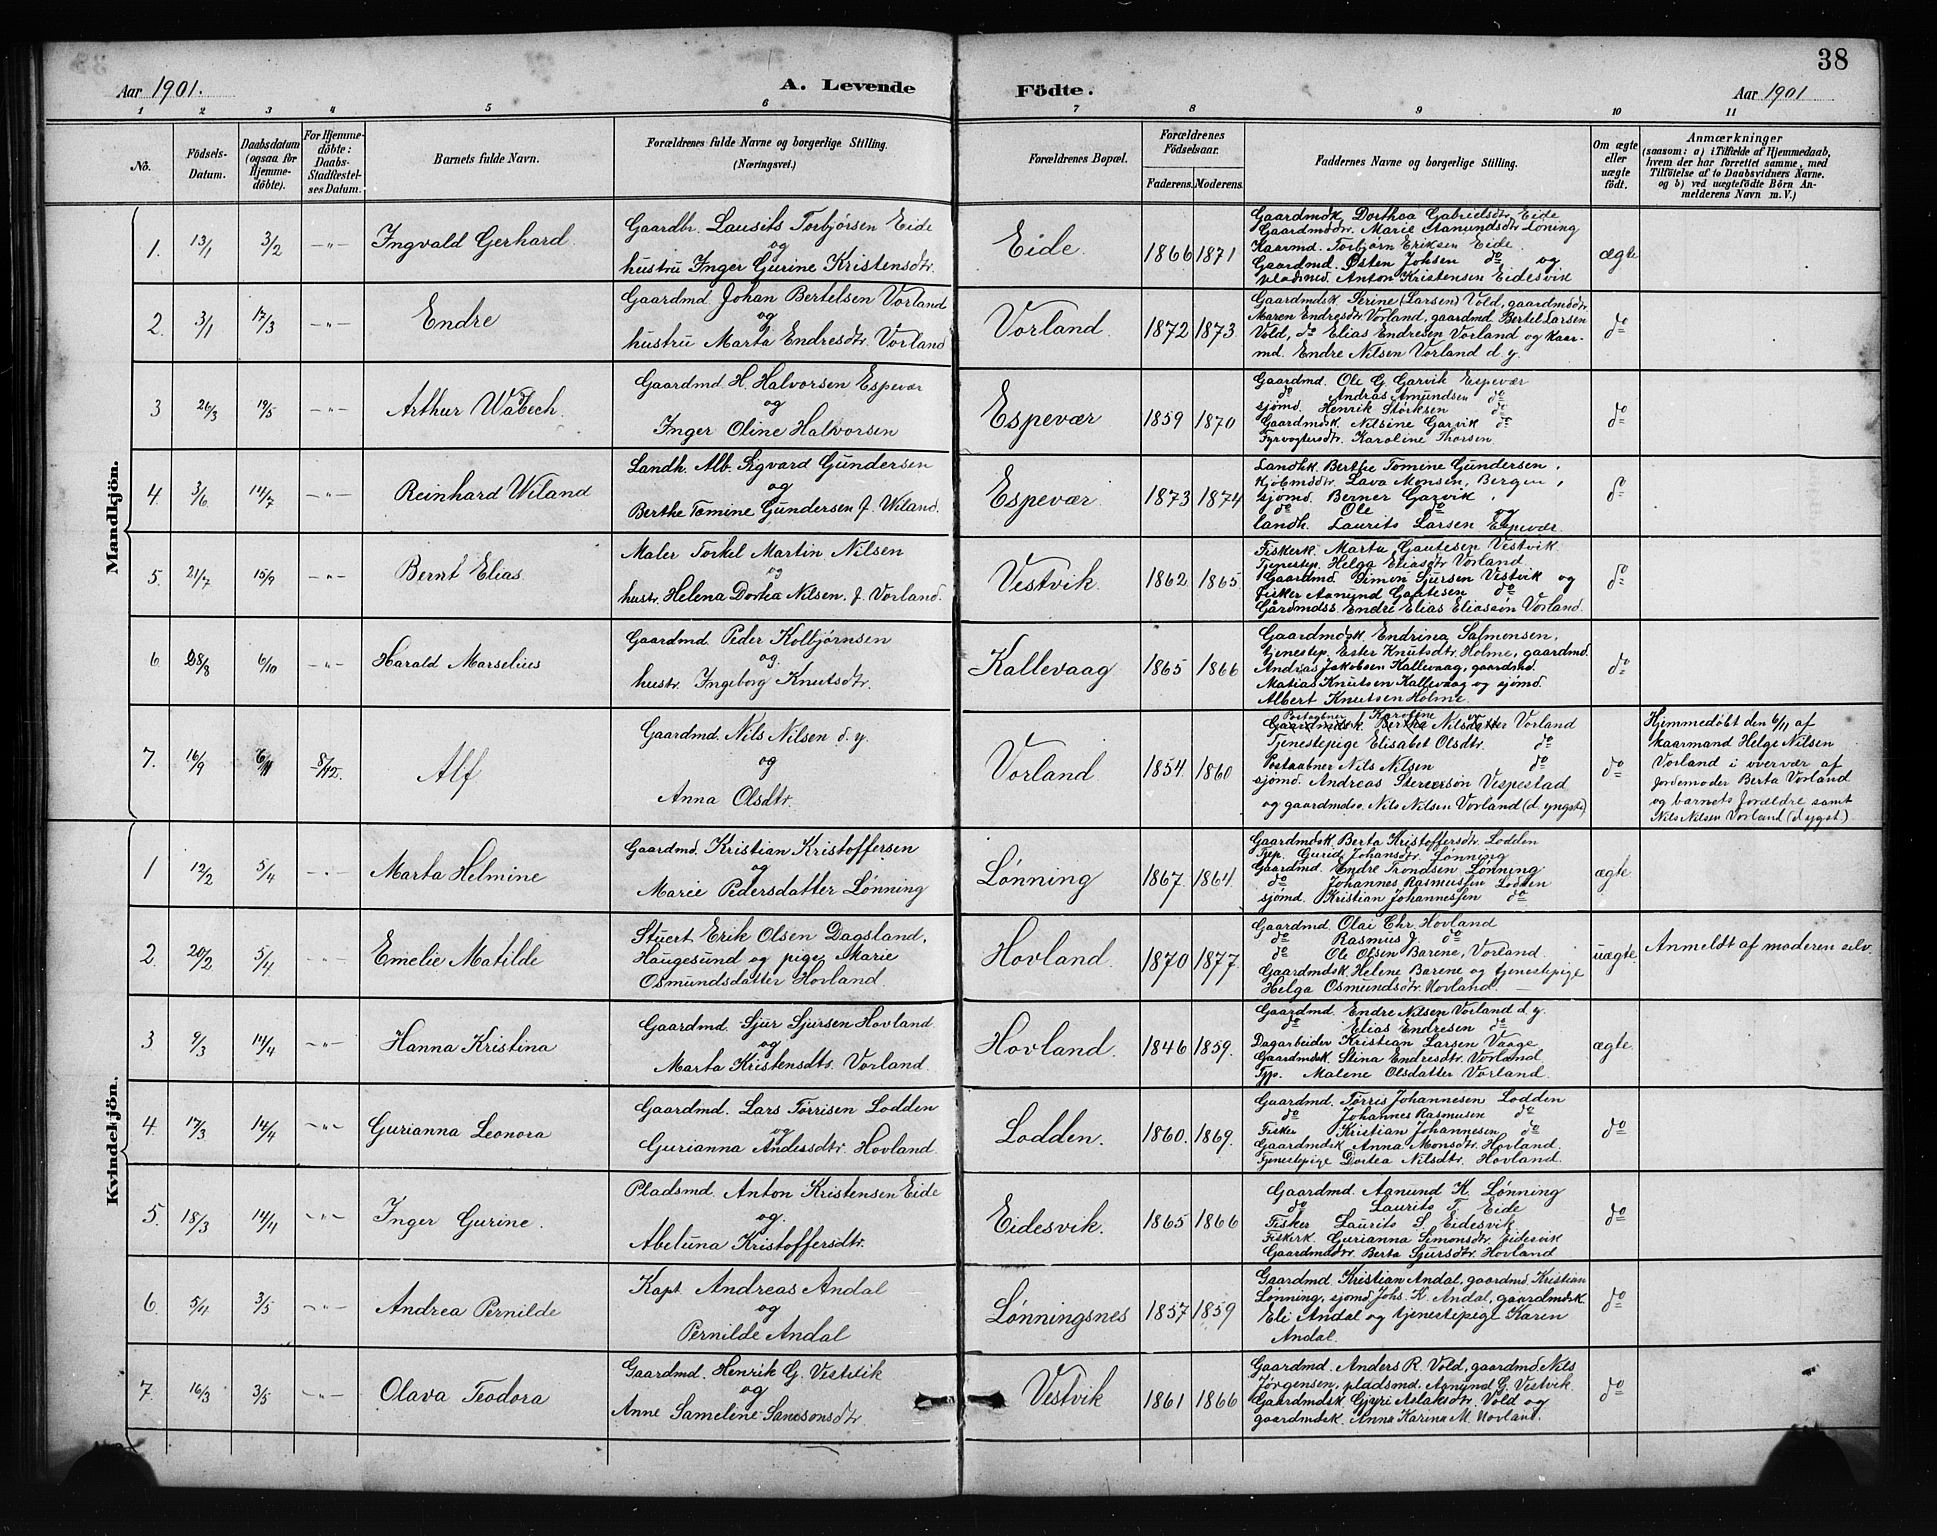 38
Aar 1901. A. Levende Födte. Aar 1901
1 2 3 4 5 6 7 8 9 10 11
No. Födsels-Datum. Daabsdatum (ogsaa for Hjemme-döbte). For Hjemme-döbte: Daabs-Stadfæstel-ses Datum. Barnets fulde Navn. Forældrenes fulde Navne og borgerlige Stilling. (Næringsvei.) Forældrenes Bopæl. Forældrenes Födselsaar. Faderens. Moderens. Faddernes Navne og borgerlige Stilling. Om ægte eller uægte födt. Anmærkninger (saasom: a) i Tilfælde af Hjemmedaab, hvem der har forrettet samme, med Tilföielse af to Daabsvidners Navne. og b) ved uægtefödte Börn An-melderens Navn m. V.)
Mandkjön.
1. 13/1 3/2 -"- Ingvald Gerhard.
Gaardbr. Lausits Torbjørsen Eide
og
hustru Inger Gurine Kristensdtr.
Eide. 1866 1871
Gaardmdk. Dorthea Gabrielsdtr. Eide
Gaardmdtr. Marie Aamundsdtr Löning
Kaarmd. Torbjørn Eriksen Eide.
Gaardmd. Østen Johsen do og
pladsmd. Anton Kristensen Eidesvik
ægte
2. 3/1 17/3 -"- Endre
Gaardmd. Johan Bertelsen Vorland
og
hustru Marta Endresdtr. Vorland
Vorland. 1872 1873.
Gaardmdsk. Serine (Larsen) Vold, gaardmdsdtr.
Maren Endresdtr. Vorland, gaardmd. Bertel Larsen
Vold, do Elias Endresen Vorland og kaar-
md. Endre Nilsen Vorland d. y.
do
3 26/3 19/5 -"- Arthur
Gaardmd. H. Halvorsen Espevær
og
Inger Oline Halvorsen
Espevær 1859 1870
Gaardmd. Ole G. Garvik Espevær
do Andras Amundsen do
sjømd. Henrik Størksen do
Gaardmdsk. Nilsine Garvik do
Fyrvogtersdtr. Karoline Thorsen.
do
4. 3/6 14/7 -"- Reinhard Wiland
Landh. Alb. Sigvard Gundersen
og
Berthe Tomine Gundersen f. Wiland.
Espevær. 1873 1874
Landhk. Berthe Tomine Gundersen,
Kjøbmdsdtr. Lava Monsen, Bergen,
sjømd. Berner Garvik,
do Ole do og
landh. Laurits Larsen Espevær.
do
5. 21/7 15/9 -"- Bernt Elias.
Maler Torkel Martin Nilsen
og
hustr. Helena Dortea Nilsen, f. Vorland.
Vestvik. 1862 1865
Fiskerk. Marta Gautesen Vestvik.
Tjenestep. Helga Eliasdtr Vorland
Gaardmd. Simon Sjursen Vestvik og
fisker Aamund Gautesen do
Gårdmdss. Endre Elias Eliassøn Vorland.
do
6 28/8 6/10 -"- Harald Marselius
Gaardmd. Peder Kolbjørnsen
og
hustr. Ingeborg Knutsdtr.
Kallevaag 1865 1866
Gaardmdsk. Endrina Salmonsen,
tjenestep. Ester Knutsdtr. Holme, gaardmd.
Andreas Jakobsen Kallevaag, gaardmd.
Matias Knutsen Kallevaag og sjømd.
Albert Knutsen Holme.
do
7. 16/9 6/11 8/12. Alf
Gaardmd. Nils Nilsen d. y.
og
Anna Olsdtr.
Vorland 1854. 1860
Postaabner Karoline
Gaardmdsk Bertha Nilsdatter Vorland
Tjenestepige Elisabet Olsdtr. do
Postaabner Nils Nilsen do
sjømd. Andreas Vespestad
og gaardmdss. Nils Nilsen Vorland (d. yngste)
do
Hjemmedøbt den 6/11 af
kaarmand Helge Nilsen
Vorland i overvær af
Jordemoder Berta Vorland
og barnets forældre samt
Nils Nilsen Vorland (d. ygst)
Kvindekjön.
1 12/2 5/4 -"- Marta Helmine
Gaardmd. Kristian Kristoffersen
og
Marie Pedersdatter Lønning
Lønning 1867. 1864.
Gaardmdsk Berta Kristoffersdtr. Lodden
Tjp. Gurid Johansdtr. Lønning
Gaardmd. Endre Trondsen Lønning
do Johannes Rasmussen Lodden
sjømd. Kristian Johannessen do
ægte
2. 20/2 5/4 -"- Emelie Matilde
Stuert Erik Olsen Dagsland,
Haugesund og pige Marie
Osmundsdatter Hovland.
Hovland. 1870 1877.
Gaardmd. Olai Chr. Hovland
do Rasmus J. do
do Ole Olsen Barene, Vorland.
Gaardmdsk. Helene Barene og tjenestepige
Helga Osmundsdtr. Hovland.
uægte.
Anmeldt af moderen selv.
3 9/3 14/4 -"- Hanna Kristina
Gaardmd. Sjur Sjursen Hovland
og
Marta Kristensdtr. Vorland.
Hovland. 1846 1859.
Gaardmd. Endre Nilsen Vorland d. y.
do Elias Endresen do
Dagarbeider Kristian Larsen Vaage
Gaardmdsk Stina Endresdtr. Vorland
Tjp. Malene Olsdatter Vorland.
ægte.
4. 17/3 14/4 -"- Gurianna Leonora
Gaardmd. Lars Tørrisen Lodden
og
Gurianna Andersdtr. Hovland.
Lodden. 1860. 1869.
Gaardmd. Tørris Johannesen Lodden
do Johannes Rasmusen do
Fisker Kristian Johannesen do
Gaardmdsk Anna Monsdtr. Hovland.
Tjenestepige Dortea Nilsdtr. Hovland.
do
5. 18/3 14/4 -"- Inger Gurine.
Pladsmd. Anton Kristensen Eide
og
Abeluna Kristoffersdtr.
Eidesvik. 1865 1866
Gaardmd. Aamund K. Lønning
do Laurits T. Eide
Fisker Laurits S. Eidesvik.
Fiskerk. Gurianna Simonsdtr. Eidesvik
Gaardmdsdtr. Berta Sjursdtr. Hovland
do
6. 5/4 3/5 -"- Andrea Pernilde
Kapt. Andreas Andal
og
Pernilde Andal
Lønningsnes 1857 1859
Gaardmd. Kristian Andal, gaardmd. Kristian
Lønning, sjømd Johs. K. Andal, gaardmdsk.
Eli Andal og tjenestepige Karen
Andal.
do
7. 16/3 3/5 -"- Olava Teodora
Gaardmd. Henrik G. Vestvik
og
Anne Sameline Samsonsdtr.
Vestvik 1861 1866
Gaardmd. Anders R. Vold, gaardmd. Nils
Jørgensen, pladsmd. Aamund G. Vestvik.
Gaardmdsk Gjyri Aslaksdtr. Vold og
gaardmdsk. Anna Karina M. Hovland.
do